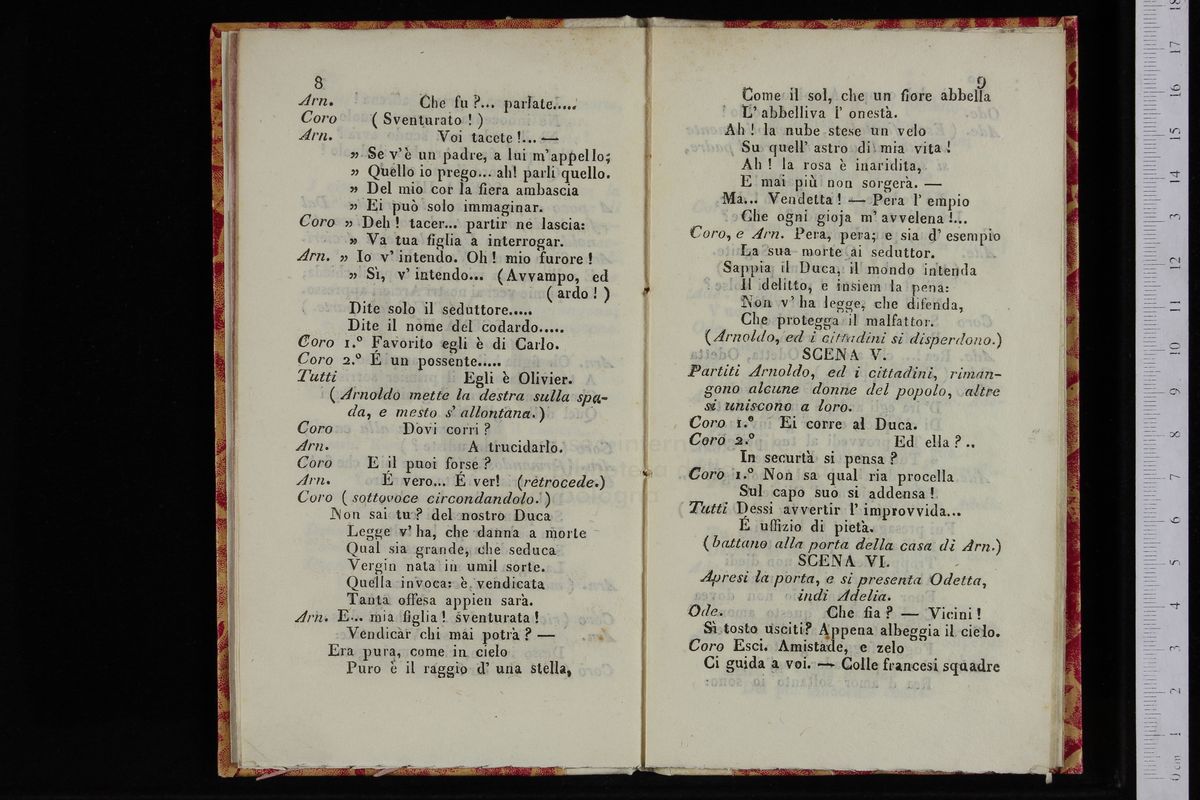 8
Arn. Che fu ?... parlate.....
Coro ( Sventurato ! )
Arn. Voi tacete !... —
„ Se v'è un padre, a lui m'appello;
„ Quello io prego... ah! parli quello.
„ Del mio cor la fiera ambascia
„ Ei può solo immaginar.
Coro „ Deh ! tacer... partir ne lascia:
„ Va tua figlia a interrogar.
Arn. „ Io v' intendo. Oh ! mio furore !
„ Sì, v' intendo... (Avvampo, ed
( ardo ! )
Dite solo il seduttore.....
Dite il nome del codardo.....
Coro 1.° Favorito egli è di Carlo.
Coro 2.° É un possente.....
Tutti Egli è Olivier.
( Arnoldo mette la destra sulla spa-
da, e mesto s' allontana. )
Coro Dovi corri ?
Arn. A trucidarlo.
Coro E il puoi forse ?
Arn. É vero... É ver! (retrocede.)
Coro ( sottovoce circondandolo. )
Non sai tu ? del nostro Duca
Legge v' ha, che danna a morte
Qual sia grande, che seduca
Vergin nata in umil sorte.
Quella invoca: è vendicata
Tanta offesa appien sarà.
Arn. E... mia figlia ! sventurata !
Vendicàr chi mai potrà ? —
Era pura, come in cielo
Puro è il raggio d' una stella,
9
Come il sol, che un fiore abbella
L' abbelliva l' onestà.
Ah ! la nube stese un velo
Su quell' astro di mia vita !
Ah ! la rosa è inaridita,
E mai più non sorgerà. —
Ma... Vendetta ! — Pera l' empio
Che ogni gioja m' avvelena !...
Coro, e Arn. Pera, pera; e sia d' esempio
La sua morte ai seduttor.
Sappia il Duca, il mondo intenda
Il delitto, e insiem la pena:
Non v' ha legge, che difenda,
Che protegga il malfattor.
( Arnoldo, ed i cittadini si disperdono.)
SCENA V.
Partiti Arnoldo, ed i cittadini, riman-
gono alcune donne del popolo, altre
si uniscono a loro.
Coro 1.° Ei corre al Duca.
Coro 2.° Ed ella ? ..
In securtà si pensa ?
Coro 1.° Non sa qual ria procella
Sul capo suo si addensa !
Tutti Dessi avvertir l' improvvida...
É uffizio di pietà.
( battano alla porta della casa di Arn.)
SCENA VI.
Apresi la porta, e si presenta Odetta,
indi Adelia.
Ode. Che fia ? — Vicini !
Sì tosto usciti? Appena albeggia il cielo.
Coro Esci. Amistade, e zelo
Ci guida a voi. — Colle francesi squadre